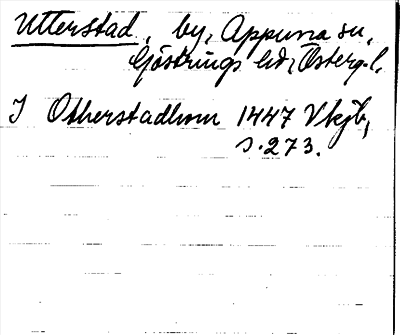 Utterstad, by, Appuna sn,
Göstrings hd, Österg. l.
I Otherstadhum 1447 Vkjb,
s. 273.